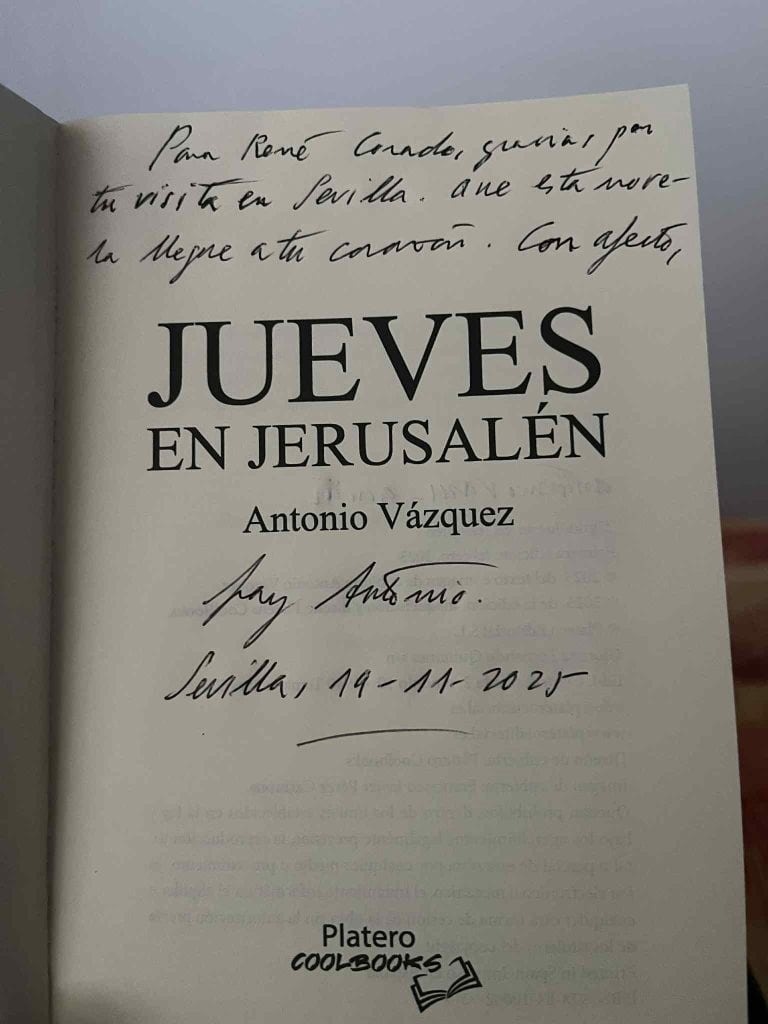 Para René Corado, gracias por
tu visita en Sevilla. Que esta nove-
la llegue a tu corazón. Con afecto,
JUEVES
EN JERUSALÉN
Antonio Vázquez
fray Antonio.
Sevilla, 19-11-2025
Platero
COOLBOOKS